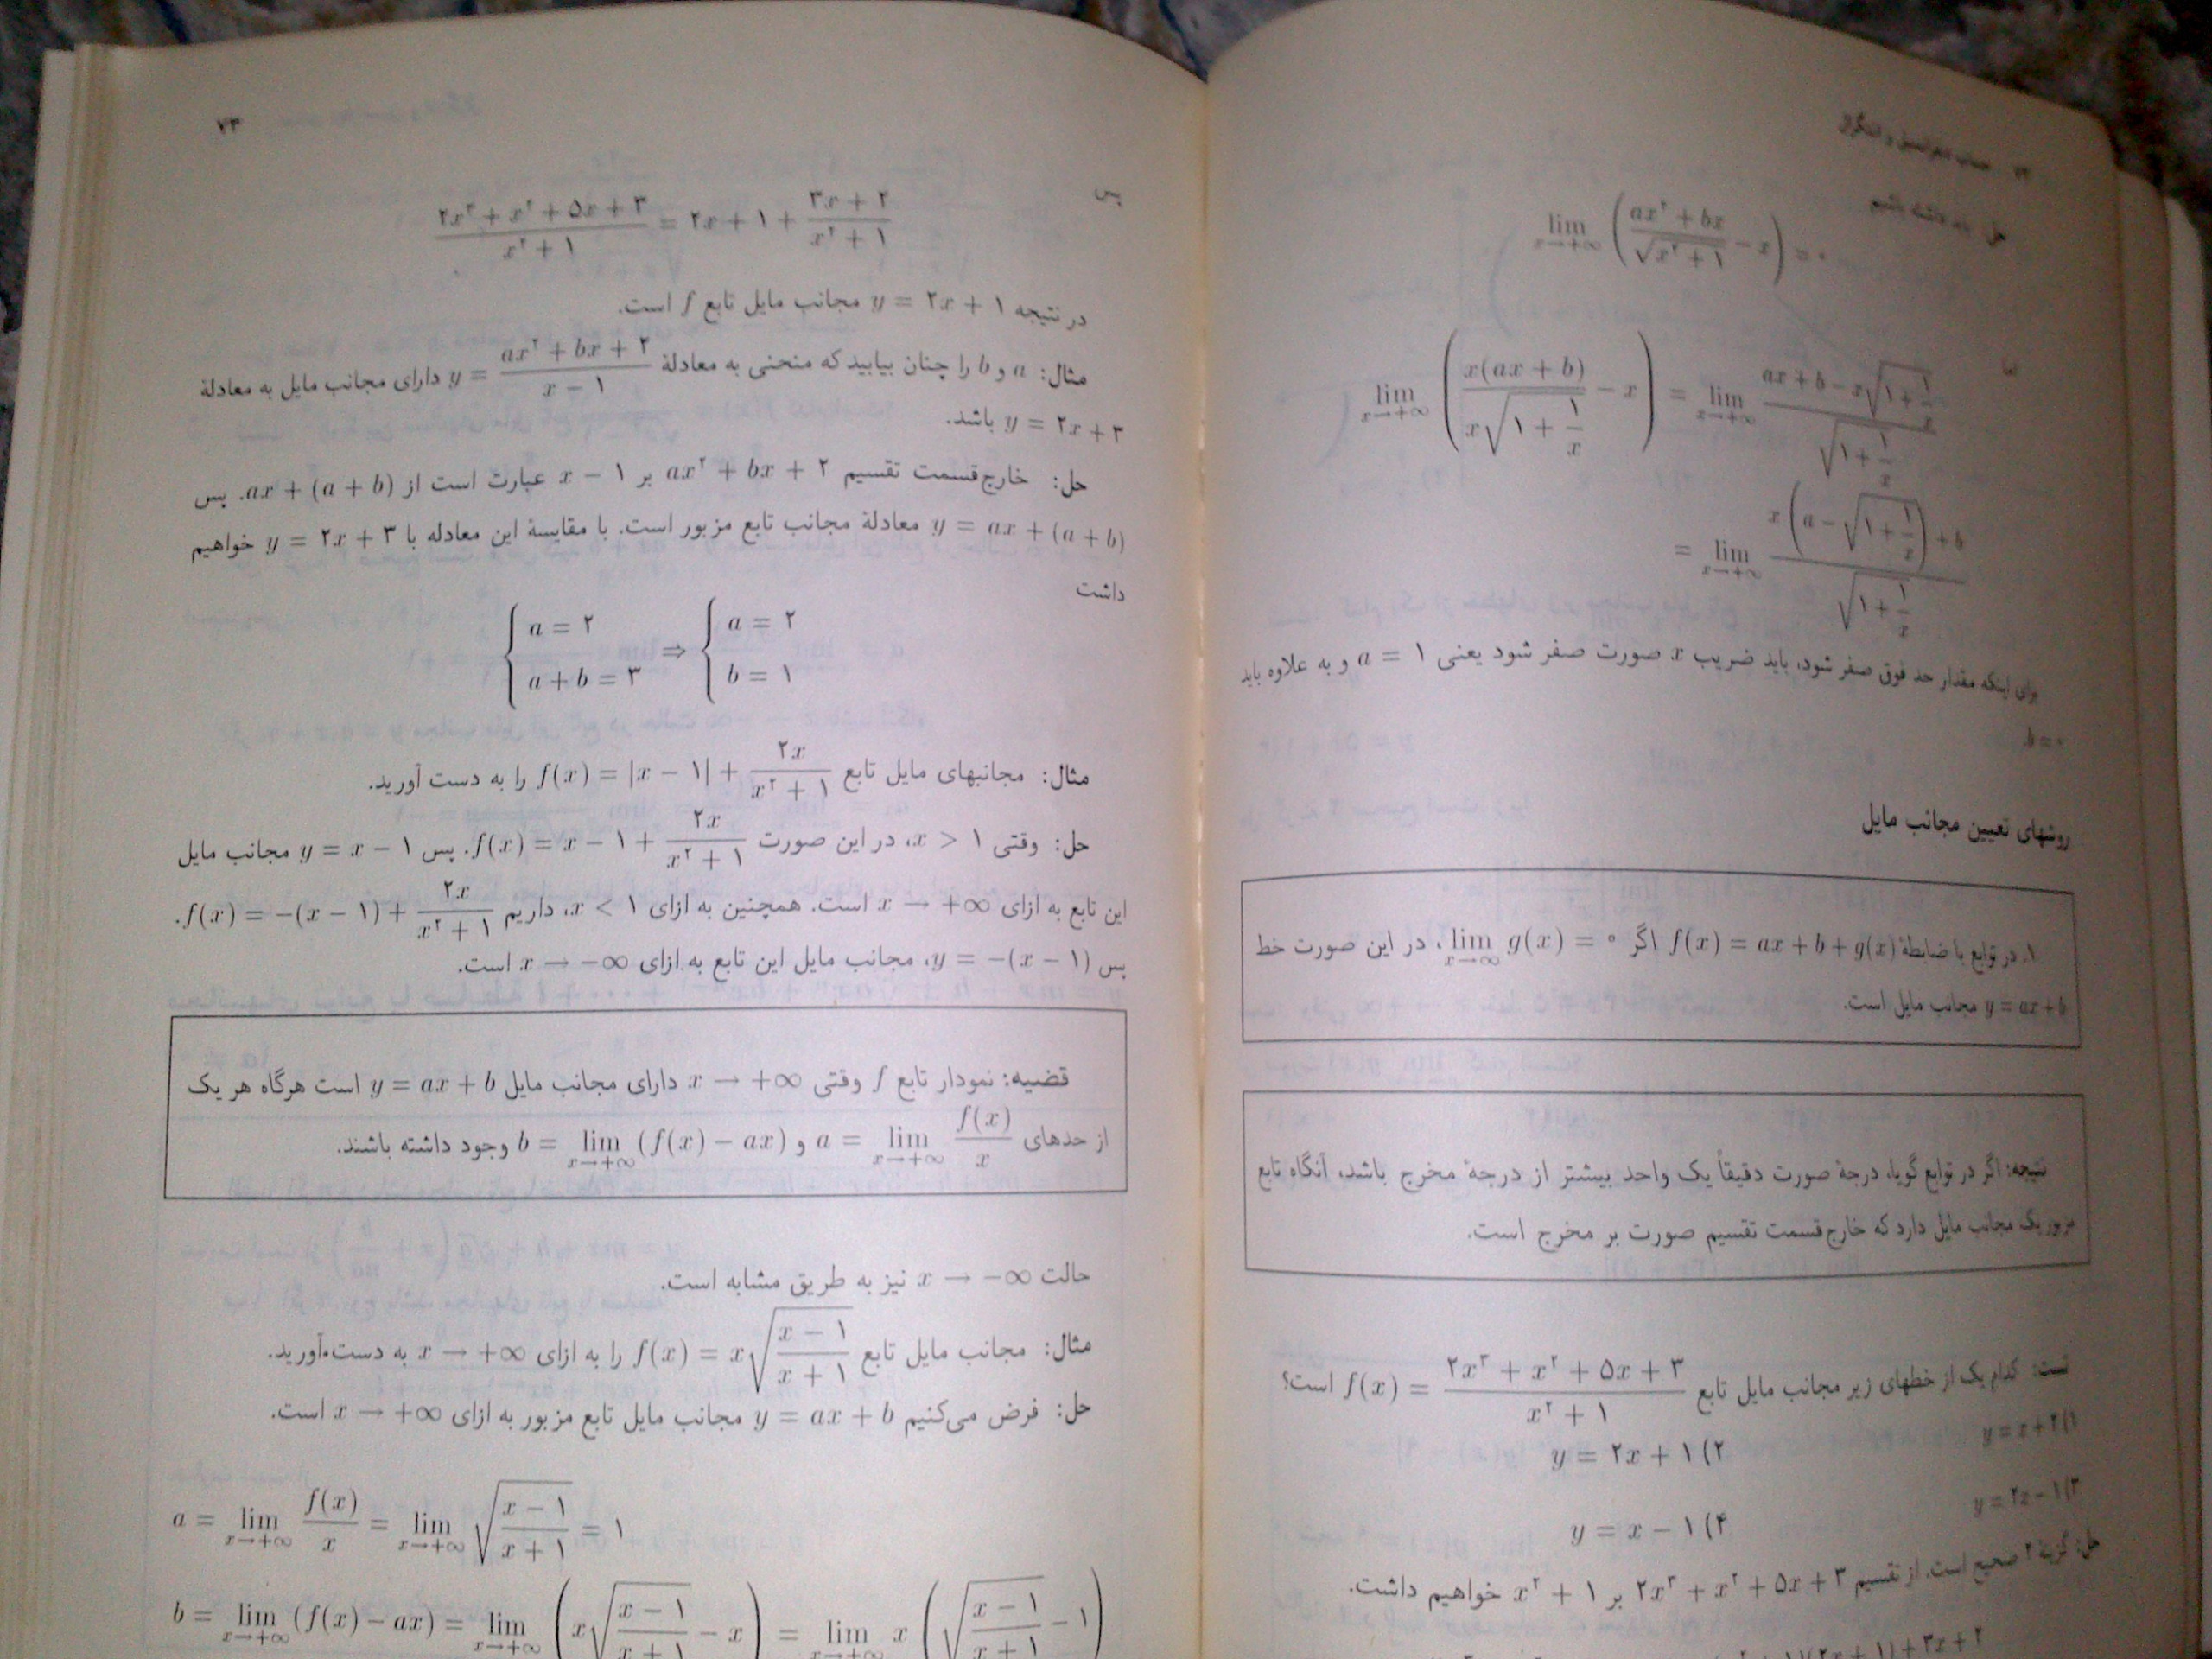 ۷۲ حساب دیفرانسیل و انتگرال
حل: باید داشته باشیم
lim x→+∞ (ax² + bx / √x² + ۱ − x) = ۰
اما
lim x→+∞ (x(ax + b) / x√۱ + ۱/x − x) = lim x→+∞ ax + b − x√۱ + ۱/x / √۱ + ۱/x
= lim x→+∞ x(a − √۱ + ۱/x) + b / √۱ + ۱/x
برای اینکه مقدار حد فوق صفر شود، باید ضریب x صورت صفر شود یعنی a = ۱ و به علاوه باید
b = ۰
روشهای تعیین مجانب مایل
۱. در توابع با ضابطهٔ f(x) = ax + b + g(x) اگر lim x→∞ g(x) = ۰، در این صورت خط
y = ax + b مجانب مایل است.
نتیجه: اگر در توابع گویا، درجهٔ صورت دقیقاً یک واحد بیشتر از درجهٔ مخرج باشد، آنگاه تابع
مزبور یک مجانب مایل دارد که خارج‌قسمت تقسیم صورت بر مخرج است.
تست: کدام یک از خطهای زیر مجانب مایل تابع f(x) = ۲x³ + x² + ۵x + ۳ / x² + ۱ است؟
۱) y = x + ۲ ۲) y = ۲x + ۱
۳) y = ۲x − ۱ ۴) y = x − ۱
حل: گزینهٔ ۲ صحیح است. از تقسیم ۲x³ + x² + ۵x + ۳ بر x² + ۱ خواهیم داشت.
(۲x + ۱) + ۳x + ۲
۷۳
پس
۲x³ + x² + ۵x + ۳ / x² + ۱ = ۲x + ۱ + ۳x + ۲ / x² + ۱
در نتیجه y = ۲x + ۱ مجانب مایل تابع f است.
مثال: a و b را چنان بیابید که منحنی به معادلهٔ y = ax² + bx + ۲ / x − ۱ دارای مجانب مایل به معادلهٔ
y = ۲x + ۳ باشد.
حل: خارج‌قسمت تقسیم ax² + bx + ۲ بر x − ۱ عبارت است از ax + (a + b). پس
y = ax + (a + b) معادلهٔ مجانب تابع مزبور است. با مقایسهٔ این معادله با y = ۲x + ۳ خواهیم
داشت
{ a = ۲ , a + b = ۳ ⇒ { a = ۲ , b = ۱
مثال: مجانبهای مایل تابع f(x) = |x − ۱| + ۲x / x² + ۱ را به دست آورید.
حل: وقتی x > ۱، در این صورت f(x) = x − ۱ + ۲x / x² + ۱. پس y = x − ۱ مجانب مایل
این تابع به ازای x → +∞ است. همچنین به ازای x < ۱، داریم f(x) = −(x − ۱) + ۲x / x² + ۱.
پس y = −(x − ۱)، مجانب مایل این تابع به ازای x → −∞ است.
قضیه: نمودار تابع f وقتی x → +∞ دارای مجانب مایل y = ax + b است هرگاه هر یک
از حدهای a = lim x→+∞ f(x) / x و b = lim x→+∞ (f(x) − ax) وجود داشته باشند.
حالت x → −∞ نیز به طریق مشابه است.
مثال: مجانب مایل تابع f(x) = x√x − ۱ / x + ۱ را به ازای x → +∞ به دست آورید.
حل: فرض می‌کنیم y = ax + b مجانب مایل تابع مزبور به ازای x → +∞ است.
a = lim x→+∞ f(x) / x = lim x→+∞ √x − ۱ / x + ۱ = ۱
b = lim x→+∞ (f(x) − ax) = lim x→+∞ (x√x − ۱ / x + ۱ − x) = lim x→+∞ x (√x − ۱ / x + ۱ − ۱)